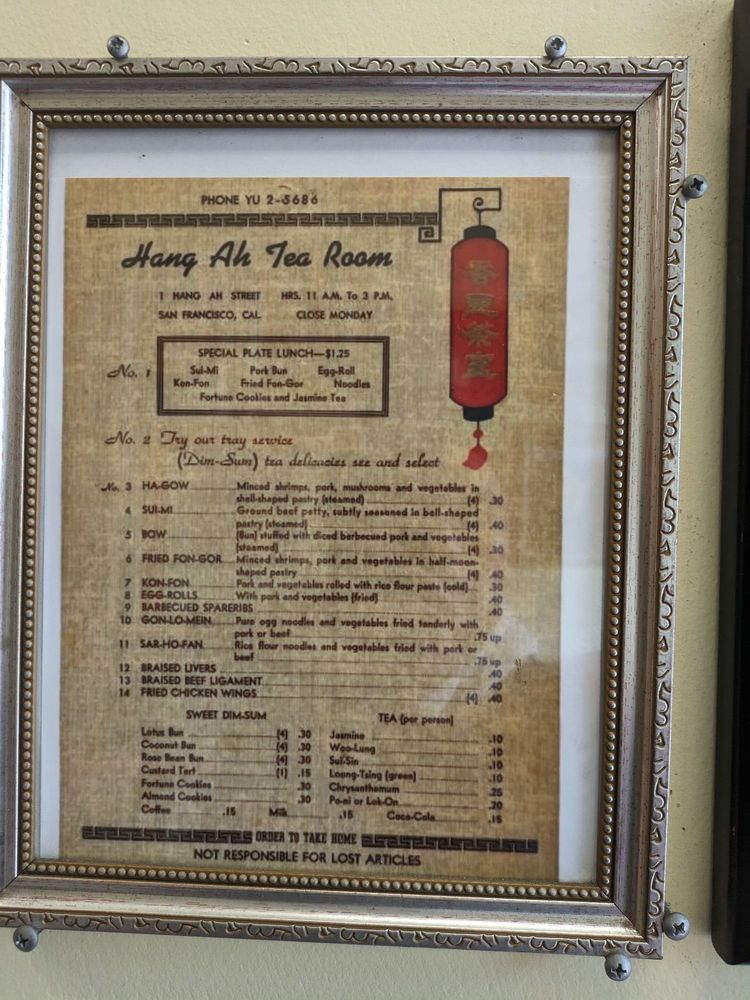 PHONE YU 2-5686
Hang Ah Tea Room
香恩茶室
1 HANG AH STREET HRS. 11 A.M. To 3 P.M.
SAN FRANCISCO, CAL. CLOSE MONDAY
No. 1
SPECIAL PLATE LUNCH—$1.25
Sui-Mi Pork Bun Egg-Roll
Kon-Fon Fried Fon-Gor Noodles
Fortune Cookies and Jasmine Tea
No. 2 Try our tray service
(Dim-Sum) tea delicacies see and select
No. 3 HA-GOW Minced shrimps, pork, mushrooms and vegetables in
shell-shaped pastry (steamed) (4) .30
4 SUI-MI Ground beef patty, subtly seasoned in bell-shaped
pastry (steamed) (4) .40
5 BOW (Bun) stuffed with diced barbecued pork and vegetables
(steamed) (4) .30
6 FRIED FON-GOR Minced shrimps, pork and vegetables in half-moon-
shaped pastry (4) .40
7 KON-FON Pork and vegetables rolled with rice flour paste (cold) .30
8 EGG-ROLLS With pork and vegetables (fried) .40
9 BARBECUED SPARERIBS .40
10 GON-LO-MEIN Pure egg noodles and vegetables fried tenderly with
pork or beef .75 up
11 SAR-HO-FAN Rice flour noodles and vegetables fried with pork or
beef .75 up
12 BRAISED LIVERS .40
13 BRAISED BEEF LIGAMENT .40
14 FRIED CHICKEN WINGS (4) .40
SWEET DIM-SUM
Lotus Bun (4) .30
Coconut Bun (4) .30
Rose Bean Bun (4) .30
Custard Tart (1) .15
Fortune Cookies .30
Almond Cookies .30
TEA (per person)
Jasmine .10
Woo-Lung .10
Sui-Sin .10
Loong-Tsing (green) .10
Chrysanthemum .25
Po-ei or Lok-On .20
Coffee .15 Milk .15 Coca-Cola .15
ORDER TO TAKE HOME
NOT RESPONSIBLE FOR LOST ARTICLES